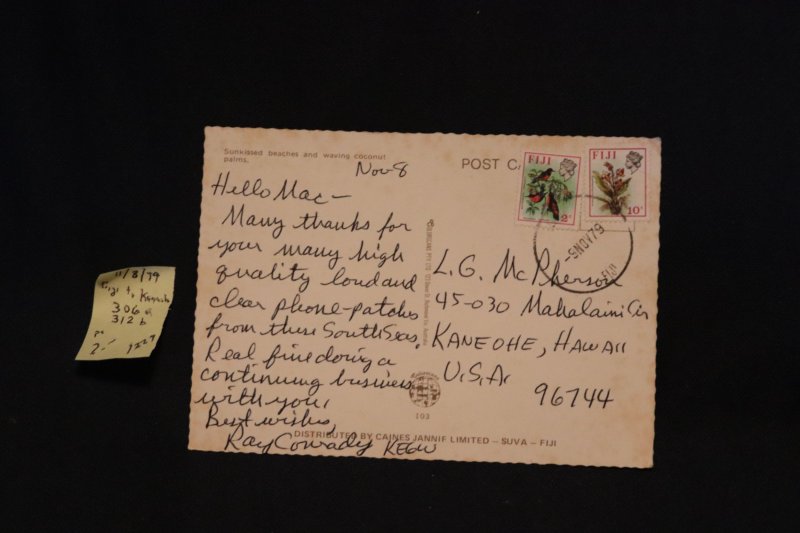 Sunkissed beaches and waving coconut
palms.
POST
FIJI
2c
FIJI
10c
-9NOV79
FIJI
Nov-8
Hello Mac-
Many thanks for
your many high
quality loud and
clear phone-patches
from these South Seas.
Real fine doing a
continuing business
with you,
Best wishes,
Ray Conrady KE6W
L.G. McPherson
45-030 Mahalani Cir
KANEOHE, HAWAII
U.S.A.
96744
103
DISTRIBUTED BY CAINES JANNIF LIMITED - SUVA - FIJI
11/8/79
306 a
312 b